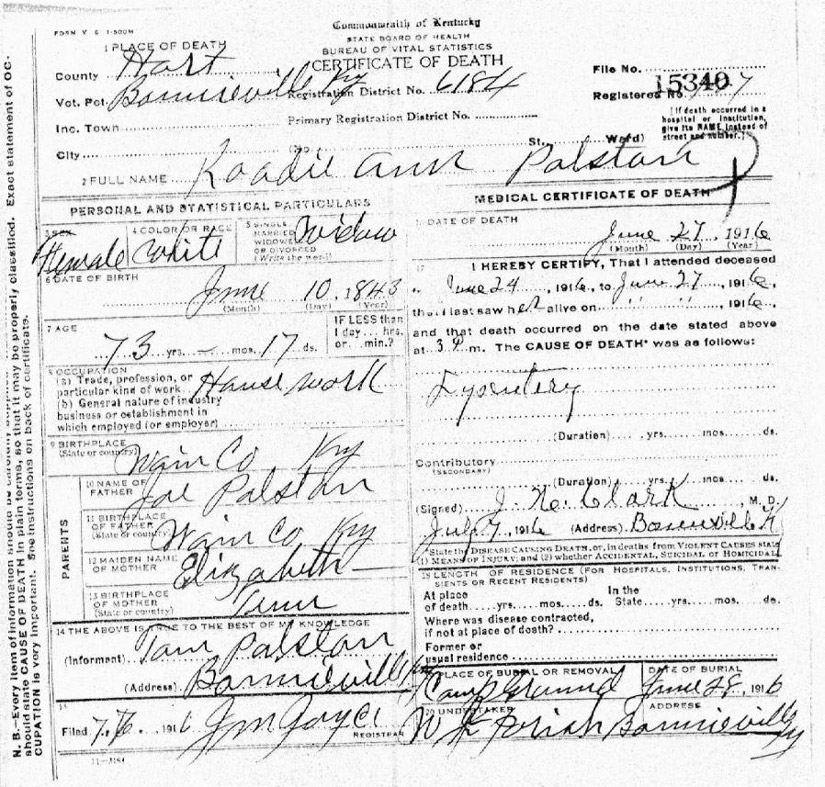 FORM V S 1-500M
Commonwealth of Kentucky
STATE BOARD OF HEALTH
BUREAU OF VITAL STATISTICS
CERTIFICATE OF DEATH
1 PLACE OF DEATH
County Hart
Vot. Pct. Bonnieville Ky
Registration District No. 6184
Inc. Town
Primary Registration District No.
City (No. St., Ward)
File No. 15340
Registered No. 7
[If death occurred in a hospital or institution, give its NAME instead of street and number.]
2 FULL NAME Roadie Ann Palston
PERSONAL AND STATISTICAL PARTICULARS
3 SEX Female
4 COLOR OR RACE White
5 SINGLE, MARRIED, WIDOWED OR DIVORCED (Write the word) Widow
6 DATE OF BIRTH
June 10, 1843
(Month) (Day) (Year)
7 AGE
73 yrs. – mos. 17 ds.
IF LESS than 1 day... hrs. or... min.?
8 OCCUPATION
(a) Trade, profession, or particular kind of work House work
(b) General nature of industry business or establishment in which employed (or employer)
9 BIRTHPLACE (State or country) Wain Co Ky
PARENTS
10 NAME OF FATHER Joe Palston
11 BIRTHPLACE OF FATHER (State or country) Wain Co Ky
12 MAIDEN NAME OF MOTHER Elizabeth
13 BIRTHPLACE OF MOTHER (State or country) Tenn
14 THE ABOVE IS TRUE TO THE BEST OF MY KNOWLEDGE
(Informant) Tom Palston
(Address) Bonnieville Ky
15
Filed 7.6. 1916 J M Joyce
REGISTRAR
11-3184
MEDICAL CERTIFICATE OF DEATH
DATE OF DEATH
June 27, 1916
(Month) (Day) (Year)
17 I HEREBY CERTIFY, That I attended deceased
June 24, 1916, to June 27, 1916,
that I last saw her alive on " ", 1916,
and that death occurred on the date stated above
at 3 P m. The CAUSE OF DEATH* was as follows:
Dysentery
(Duration) yrs. mos. ds.
Contributory
(SECONDARY)
(Duration) yrs. mos. ds.
(Signed) J. Clark, M. D.
July 7, 1916 (Address)
*State the DISEASE CAUSING DEATH, or, in deaths from VIOLENT CAUSES state (1) MEANS OF INJURY; and (2) whether ACCIDENTAL, SUICIDAL OR HOMICIDAL
18 LENGTH OF RESIDENCE (FOR HOSPITALS, INSTITUTIONS, TRANSIENTS OR RECENT RESIDENTS)
At place of death yrs. mos. ds. In the State yrs. mos. ds.
Where was disease contracted, if not at place of death?
Former or usual residence
PLACE OF BURIAL OR REMOVAL Camp Ground
DATE OF BURIAL June 28, 1916
20 UNDERTAKER
ADDRESS Bonnieville Ky
N. B.—Every item of information should be carefully supplied. should state CAUSE OF DEATH in plain terms, so that it may be properly classified. Exact statement of OCCUPATION is very important. See instructions on back of certificate.